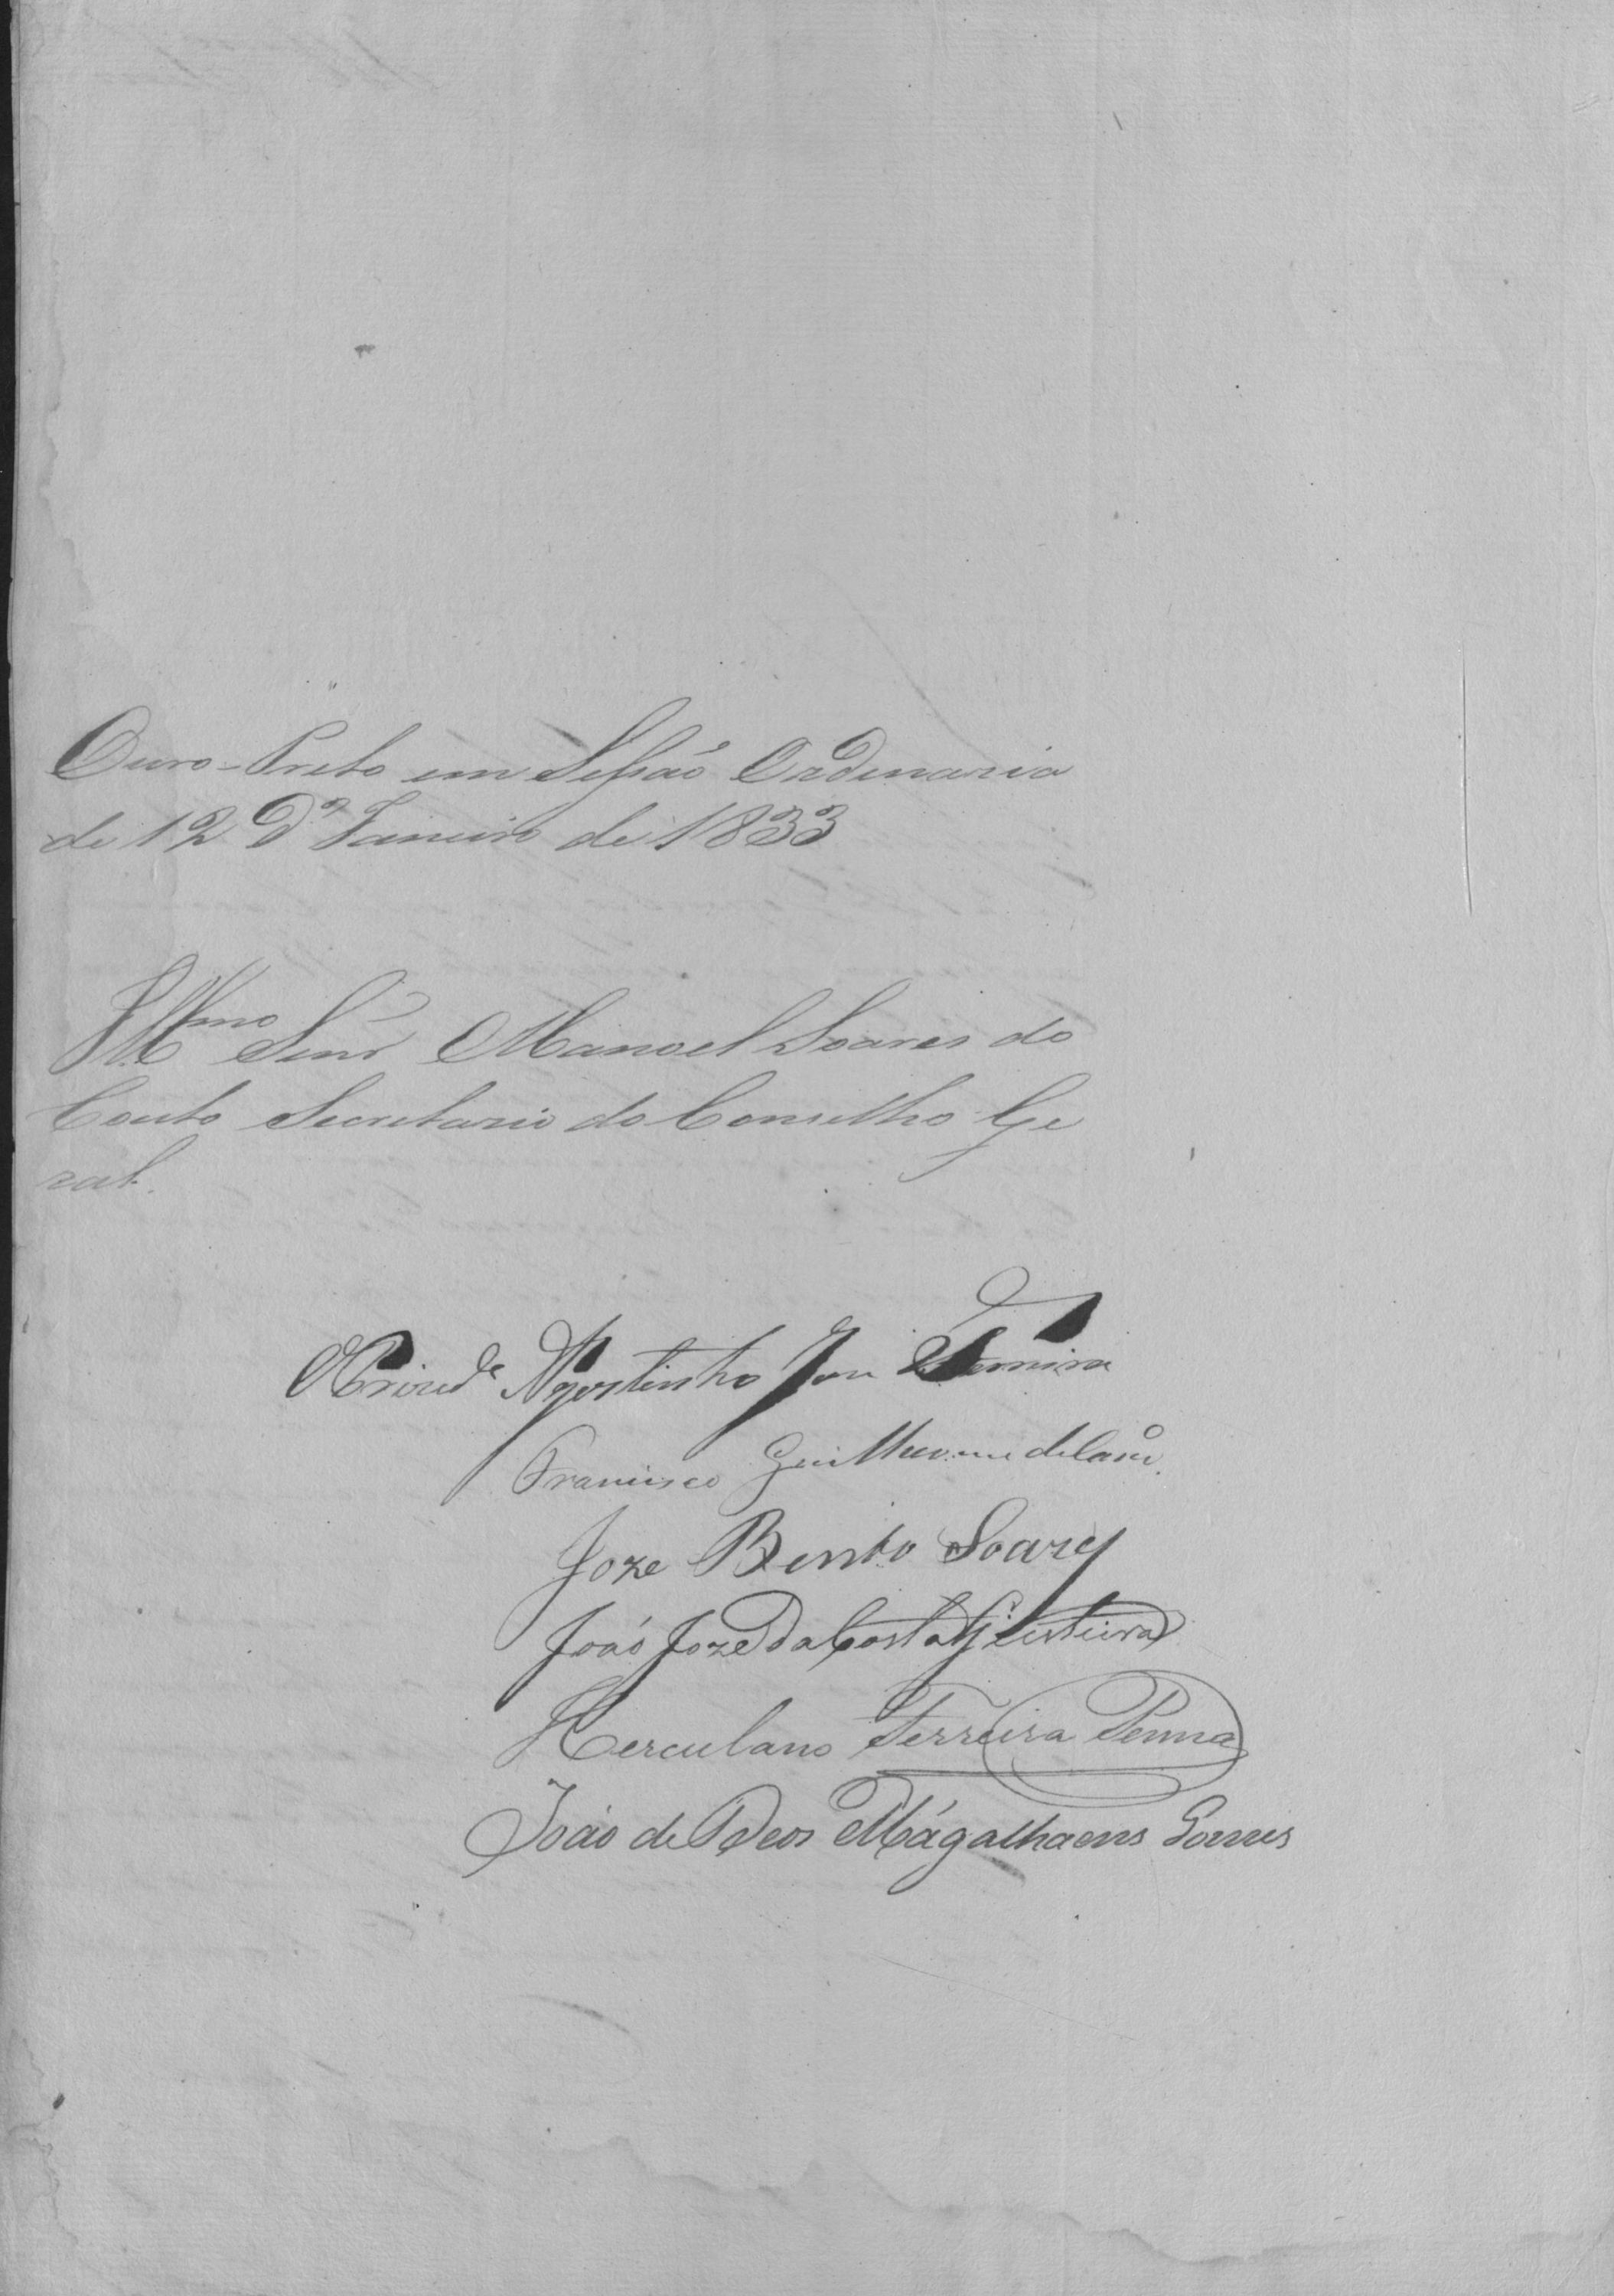 Ouro-Preto em Sessaõ Ordenaria
de 12 d'Janeiro de 1833
Illmo Senr Manoel Soares do
Couto Secretario do Conselho Ge
ral.
O Prizide Agostinho Joze Ferreira
Francisco Guilherme de Caro
Joze Bento Soares
Joaõ Joze da Costa Gesteira
Herculano Ferreira Penna
João de Deos Mágalhaens Gomes